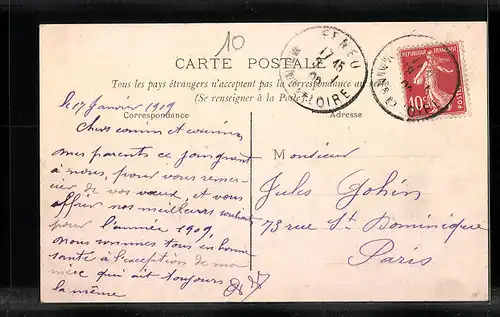 10
CARTE POSTALE
Tous les pays étrangers n'acceptent pas la correspondance au
(Se renseigner à la Poste)
FENEU
17 15
MAINE ET LOIRE
RÉPUBLIQUE FRANÇAISE
10c
POSTES
Correspondance
Adresse
le 17 Janvier 1909
Chers cousin et cousine,
mes parents se joignent
à nous, pour vous remer-
cier de vos vœux, et vous
offrir nos meilleurs souhaits
pour l'année 1909,
nous sommes tous en bonne
santé à l'exception de ma
mère qui est toujours
la même
Monsieur
Jules Johin
73 rue St Dominique
Paris